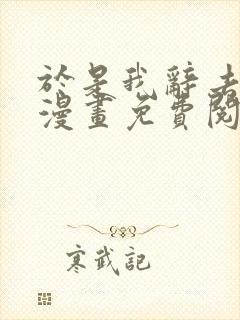 於是我辭去
漫畫免費閱
寒武記